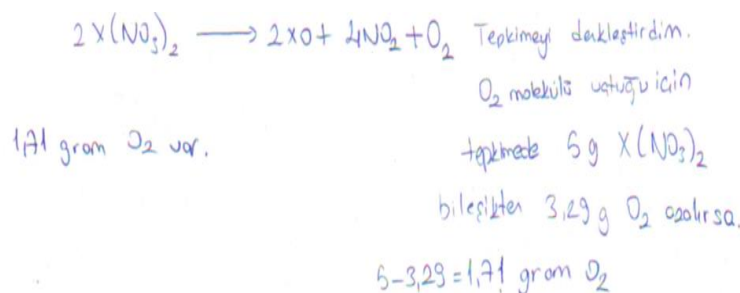 2X(NO₃)₂ ⟶ 2XO + 4NO₂ + O₂ Tepkimeyi denkleştirdim.
O₂ molekülü uçtuğu için
1,71 gram O₂ var.
tepkimede 5g X(NO₃)₂
bileşikten 3,29 g O₂ azalırsa.
5-3,29=1,71 gram O₂